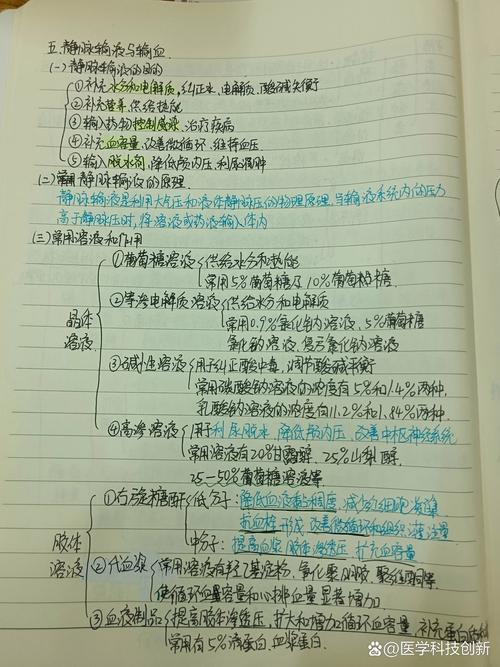 五.静脉输液与输血
(一)静脉输液的目的
①补充水分和电解质,纠正水、电解质、酸碱失衡
②补充营养,供给热能
③输入药物控制感染,治疗疾病
④补充血容量,改善微循环,维持血压
⑤输入脱水剂,降低颅内压,利尿消肿
(二)常用静脉输液的原理
静脉输液是利用大气压和液体静脉压的物理原理,当输液系统内的压力
高于静脉压时,将溶液或药液输入体内
(三)常用溶液和作用
晶体
溶液
①葡萄糖溶液
供给水分和热能
常用5%葡萄糖及10%葡萄糖
②等渗电解质溶液
供给水分和电解质
常用0.9%氯化钠溶液、5%葡萄糖
氯化钠溶液、复方氯化钠溶液
③碱性溶液
用于纠正酸中毒,调节酸碱平衡
常用碳酸钠溶液的浓度有5%和1.4%两种,
乳酸钠溶液的浓度有11.2%和1.84%两种.
④高渗溶液
用于利尿脱水,降低颅内压,改善中枢神经系统
常用溶液有20%甘露醇、25%山梨醇、
25-50%葡萄糖溶液等
胶体
溶液
①右旋糖酐
低分子:降低血液黏稠度,减少红细胞聚集
抗血栓形成 改善微循环和组织灌注量
中分子:提高血浆胶体渗透压 扩充血容量
②代血浆
常用溶液有羟乙基淀粉、氧化聚明胶、聚维酮等.
使循环血容量和心排血量显著增加.
③血液制品
提高胶体渗透压,扩大和增加循环血容量,补充蛋白
常用有5%清蛋白、血浆蛋白.
医学科技创新